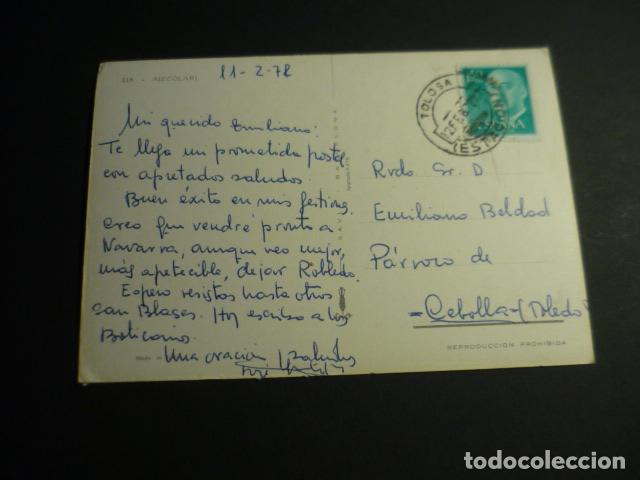 11-2-72
Mi querido Emiliano:
Te llega mi prometida postal
con apretados saludos.
Buen éxito en mis gestiones,
creo que vendré pronto a
Navarra, aunque veo mejor,
más apetecible, dejar Robledo.
Espero resistas hasta otros
san Blases. Hoy escribo a los
Boticarios.
Una oración y saludos
TOLOSA
Rvdo. Sr. D.
Emiliano Beldad
Párroco de
=Cebolla=(Toledo)
REPRODUCCION PROHIBIDA
todocoleccion.net